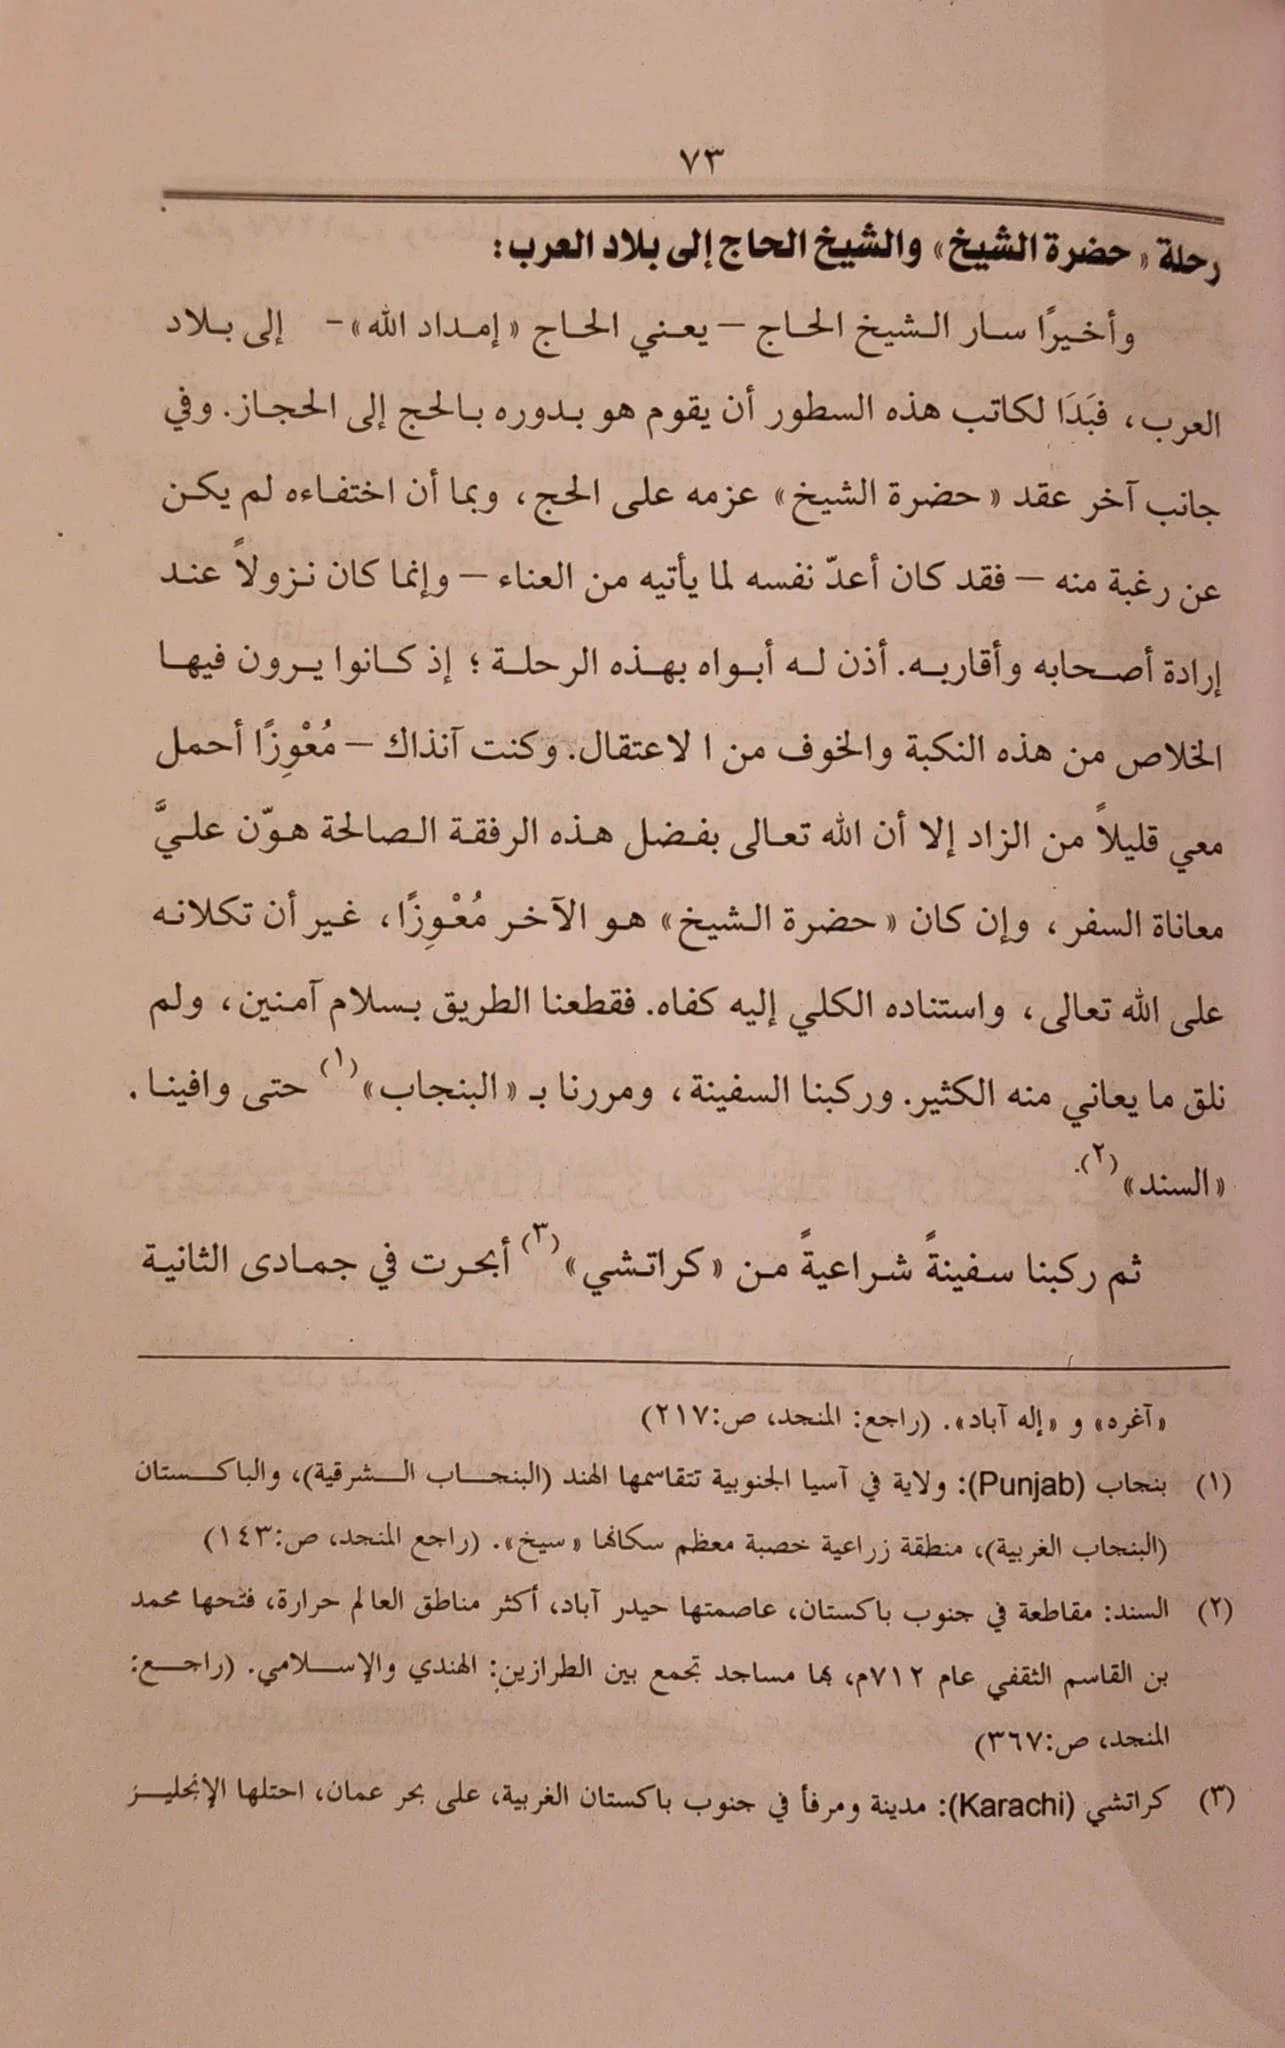 ٧٣
رحلة «حضرة الشيخ» والشيخ الحاج إلى بلاد العرب:
وأخيرًا سار الشيخ الحاج – يعني الحاج «إمداد الله»- إلى بلاد
العرب، فبَدَا لكاتب هذه السطور أن يقوم هو بدوره بالحج إلى الحجاز. وفي
جانب آخر عقد «حضرة الشيخ» عزمه على الحج، وبما أن اختفاءه لم يكن
عن رغبة منه – فقد كان أعدّ نفسه لما يأتيه من العناء – وإنما كان نزولاً عند
إرادة أصحابه وأقاربه. أذن له أبواه بهذه الرحلة؛ إذ كانوا يرون فيها
الخلاص من هذه النكبة والخوف من ا لاعتقال. وكنت آنذاك – مُعْوِزًا أحمل
معي قليلاً من الزاد إلا أن الله تعالى بفضل هذه الرفقة الصالحة هوّن عليَّ
معاناة السفر، وإن كان «حضرة الشيخ» هو الآخر مُعْوِزًا، غير أن تكلانه
على الله تعالى، واستناده الكلي إليه كفاه. فقطعنا الطريق بسلام آمنين، ولم
نلق ما يعاني منه الكثير. وركبنا السفينة، ومررنا بـ «البنجاب»(١) حتى وافينا.
«السند»(٢).
ثم ركبنا سفينةً شراعيةً من «كراتشي»(٣) أبحرت في جمادى الثانية
«آغره» و «إله آباد». (راجع: المنجد، ص:٢١٧)
(١) بنجاب (Punjab): ولاية في آسيا الجنوبية تتقاسمها الهند (البنجاب الشرقية)، والباكستان
(البنجاب الغربية)، منطقة زراعية خصبة معظم سكانها «سيخ». (راجع المنجد، ص:١٤٣)
(٢) السند: مقاطعة في جنوب باكستان، عاصمتها حيدر آباد، أكثر مناطق العالم حرارة، فتحها محمد
بن القاسم الثقفي عام ٧١٢م، بها مساجد تجمع بين الطرازين: الهندي والإسلامي. (راجع:
المنجد، ص:٣٦٧)
(٣) كراتشي (Karachi): مدينة ومرفأ في جنوب باكستان الغربية، على بحر عمان، احتلها الإنجليز